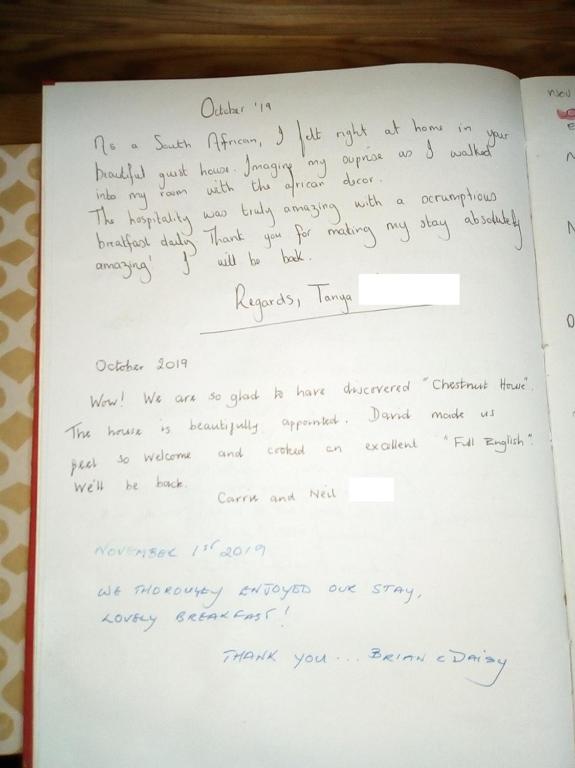 October '19
As a South African, I felt right at home in your
beautiful guest house. Imagine my suprise as I walked
into my room with the african decor.
The hospitality was truly amazing with a scrumptious
breakfast daily. Thank you for making my stay absolutely
amazing! I will be back.
Regards, Tanya
October 2019
Wow! We are so glad to have discovered "Chestnut House".
The house is beautifully appointed. David made us
feel so welcome and cooked an excellent "Full English".
We'll be back.
Carris and Neil
NOVEMBER 1ST 2019
WE THOROUGLY ENJOYED OUR STAY,
LOVELY BREAKFAST!
THANK YOU... BRIAN & DAISY
Nov